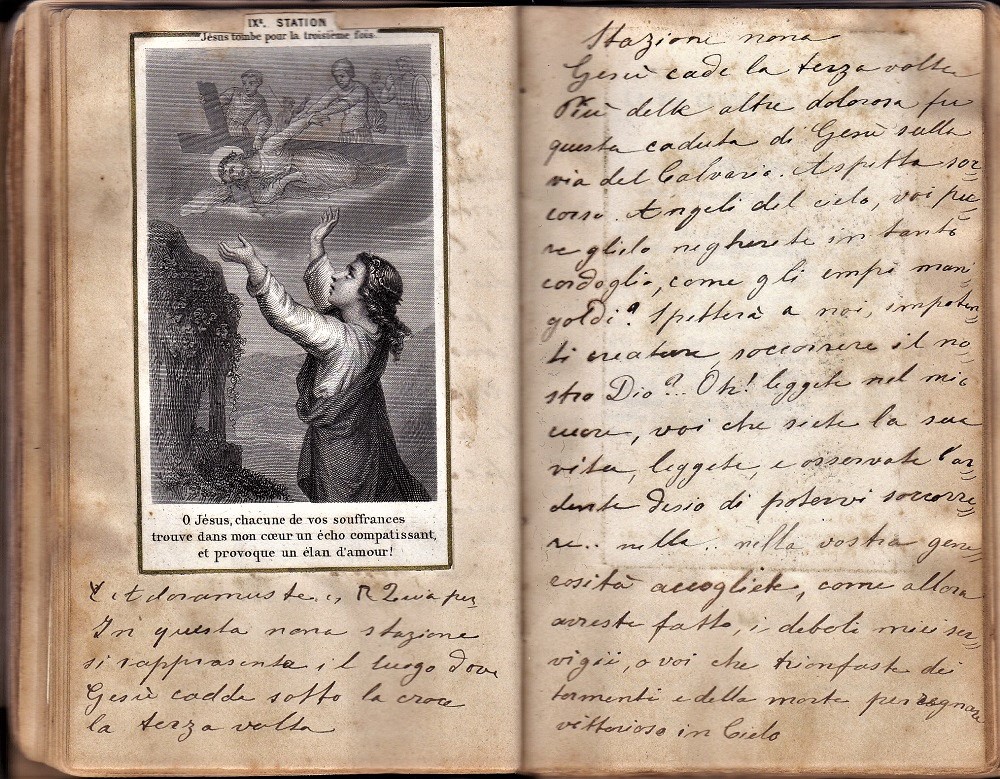 IXᵉ. STATION
Jésus tombe pour la troisième fois
O Jésus, chacune de vos souffrances
trouve dans mon cœur un écho compatissant,
et provoque un élan d'amour!
Adoramus te
In questa nona stazione
si rapprasenta il luogo dove
Gesù cadde sotto la croce
la terza volta
Stazione nona
Gesù cade la terza volta
Più delle altre dolorosa fu
questa caduta di Gesù sulla
via del Calvario. Aspetta soc
corso. Angeli del cielo, voi pu
re glielo negherete in tanto
cordoglio, come gli empi mani
goldi? Spetterà a noi, impoten
ti creature soccorrere il no
stro Dio?.. Oh! leggete nel mio
cuore, voi che siete la sua
vita, leggete, e osservate l'ar
dente desio di potervi soccorre
re.. nella.. nella vostra gene
rosità accogliete, come allora
avreste fatto, i deboli miei ser
vigii, o voi che trionfaste dei
tormenti e della morte per regnare
vittorioso in Cielo